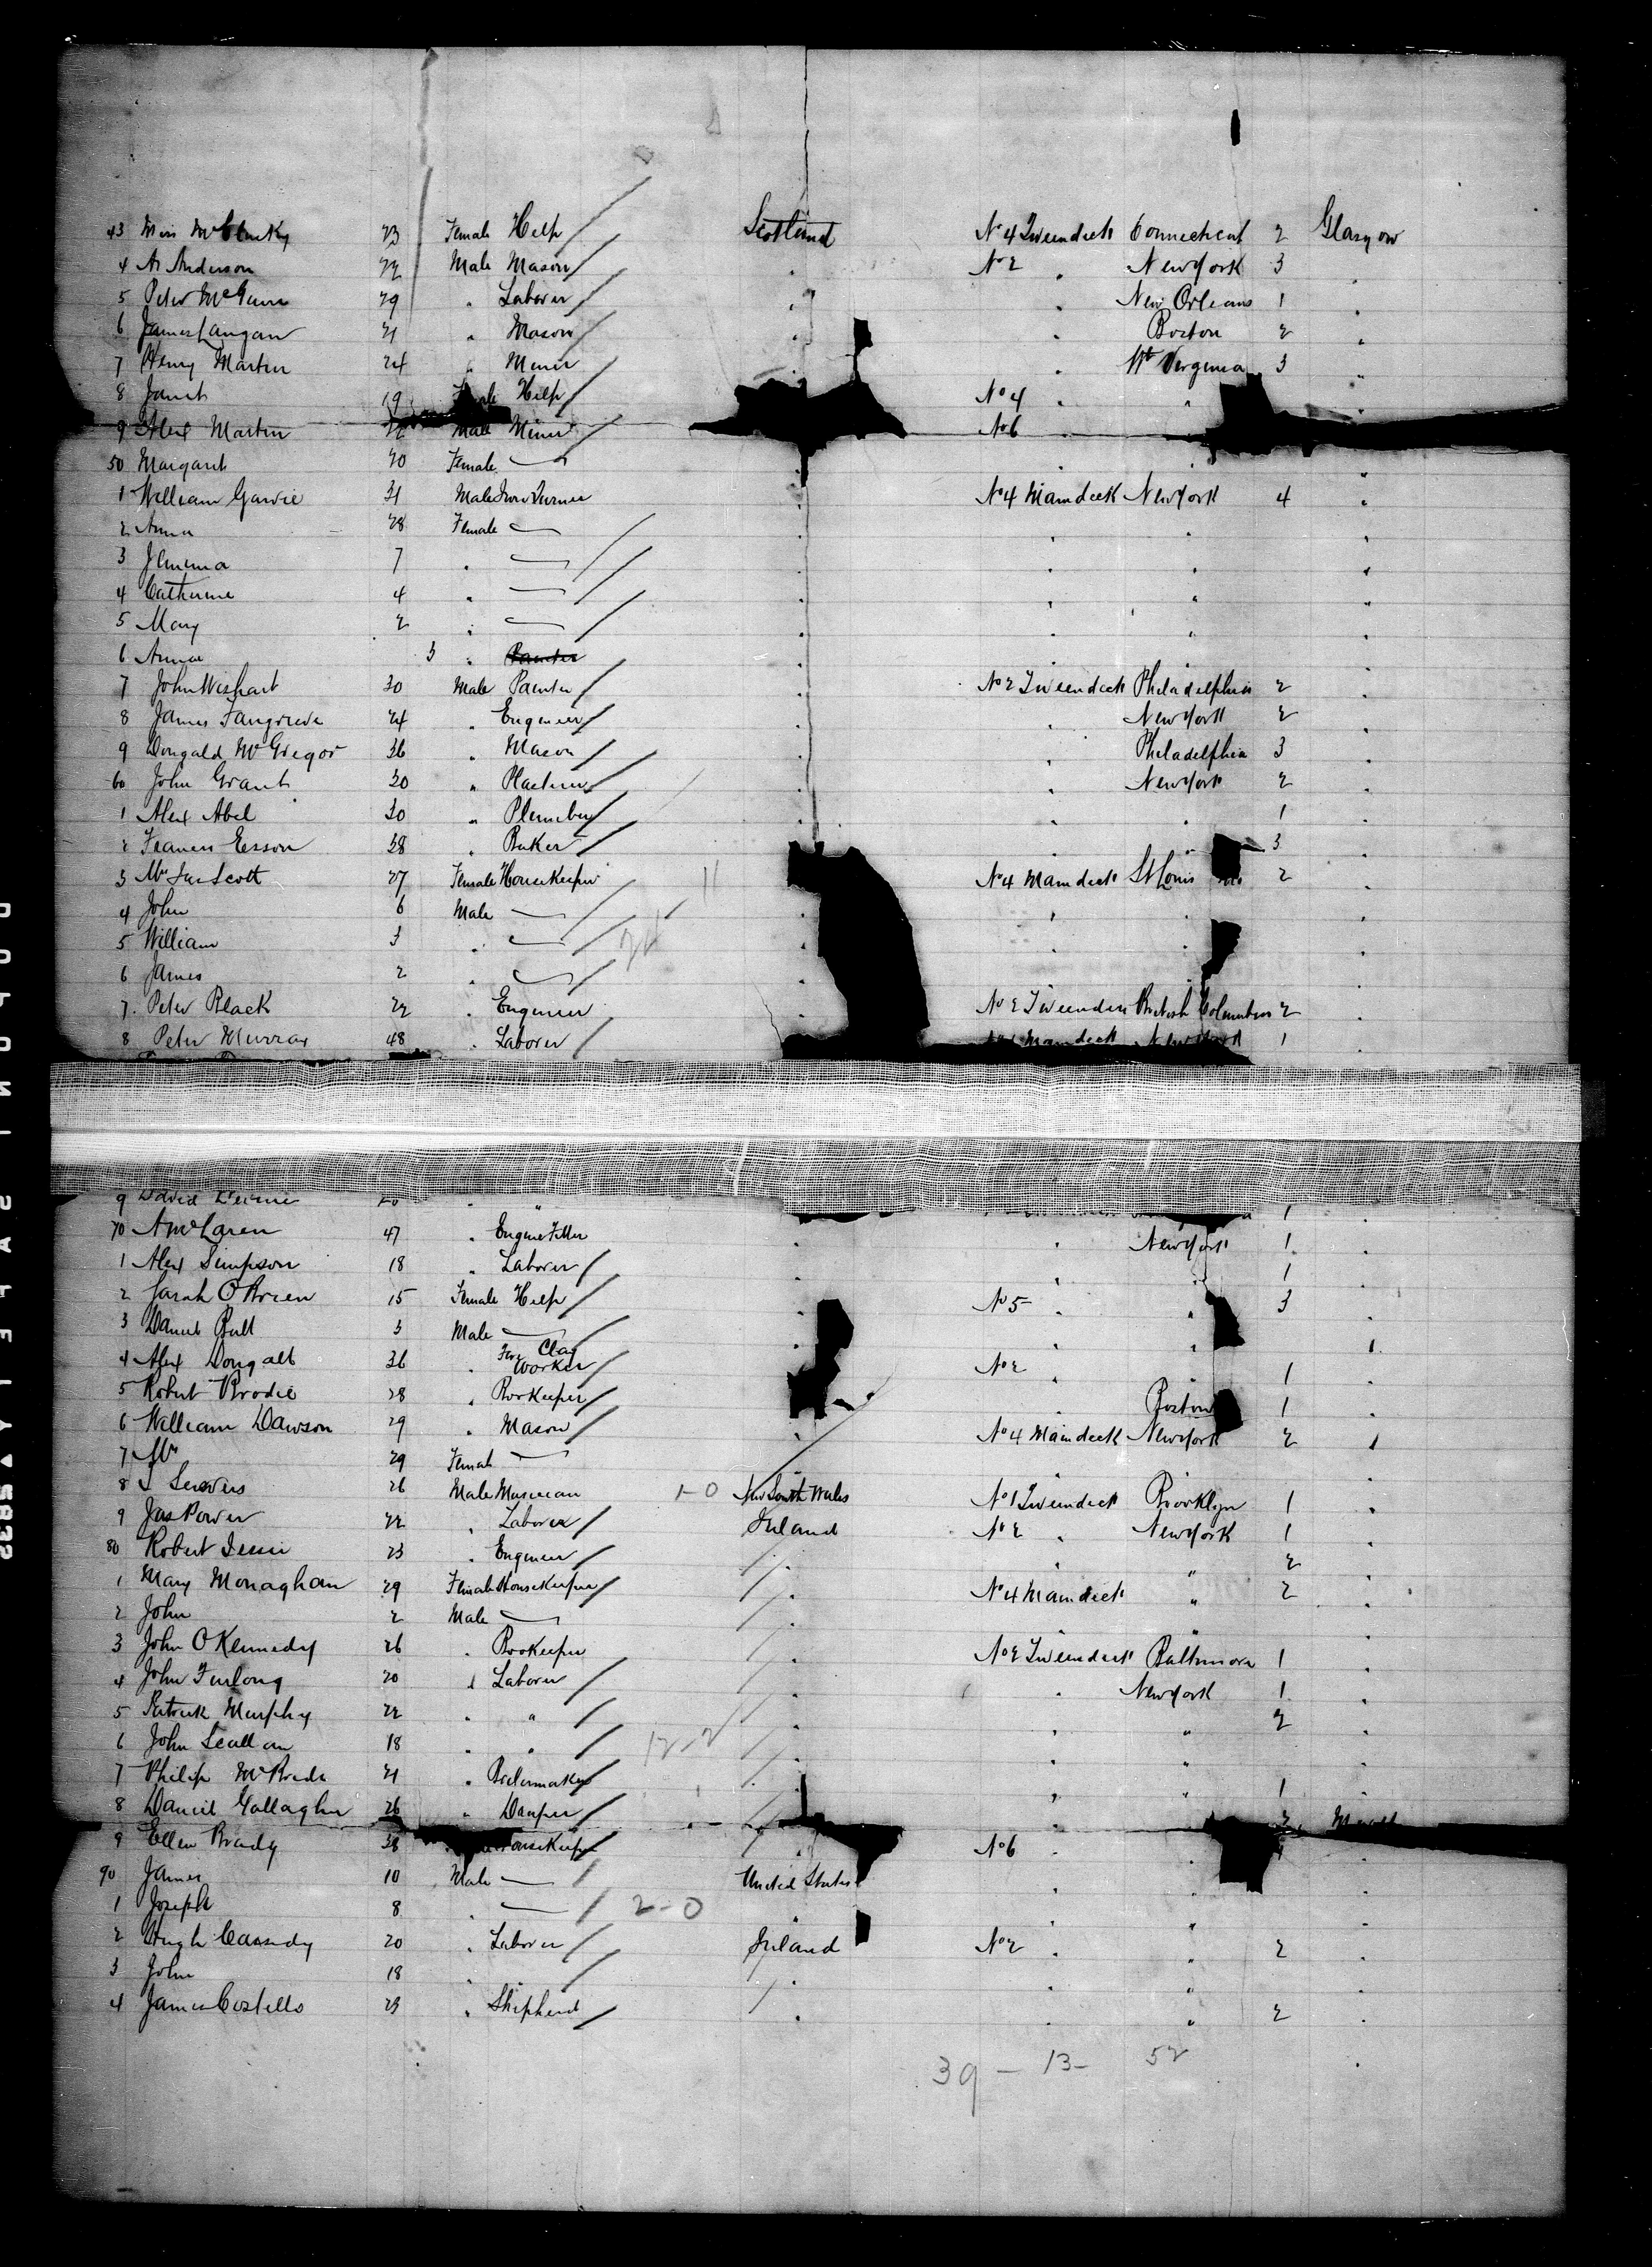 43 Miss McClusky 23 Female Help Scotland No 4 Tweendeck Connecticut 2 Glasgow
4 A Anderson 22 Male Mason No 2 New York 3
5 Peter McGann 29 Laborer New Orleans 1
6 James Langan 21 Mason Boston 2
7 Henry Martin 24 Miner Wt Virginia 3
8 Janet 19 Help No 4
9 Alex Martin Male Miner No 6
50 Margaret 20 Female
1 William Garvie 31 Male Iron Turner No 4 Maindeck New York 4
2 Anna 28 Female
3 Jemima 7
4 Catherine 4
5 Mary 2
6 Annie 3
7 John Wishart 30 Male Painter No 2 Tweendeck Philadelphia 2
8 James Fangrieve 24 Engineer New York 2
9 Dougald McGregor 36 Mason Philadelphia 3
60 John Grant 30 Plasterer New York 2
1 Alex Abel 30 Plumber 1
2 Francis Esson 38 Baker 3
3 Mrs Jas Scott 27 Female Housekeeper No 4 Maindeck St Louis 2
4 John 6 Male
5 William 3
6 James 2
7 Peter Black 22 Engineer No 2 Tweendeck British Columbia 2
8 Peter Murray 48 Laborer Maindeck New York 1
9 David 1
70 A McLaren 47 Engine Fitter New York 1
1 Alex Simpson 18 Laborer 1
2 Sarah O'Brien 15 Female Help No 5 3
3 Daniel Bell 3 Male
4 Alex Dougall 36 Fire Clay Worker No 2 1
5 Robert Brodie 28 Bookeeper Boston 1
6 William Dawson 29 Mason No 4 Maindeck New York 2
7 Mrs 29 Female
8 26 Male Musician 1-0 New South Wales No 1 Tweendeck Brooklyn 1
9 Jas Power 22 Laborer Ireland No 2 New York 1
80 Robert 23 Engineer 2
1 Mary Monaghan 29 Female Housekeeper No 4 Maindeck " 2
2 John 2 Male "
3 John O Kennedy 26 Bookeeper No 2 Tweendeck Baltimore 1
4 John Furlong 20 Laborer New York 1
5 Patrick Murphy 22 " " 2
6 John Scallan 18 " 12-2 "
7 Philip McBride 21 Boilermaker " 1
8 Daniel Gallagher 26 Draper 2
9 Ellen Brady 38 Housekeeper No 6
90 James 10 Male United States
1 Joseph 8 2-0 " "
2 Hugh Cassidy 20 Laborer Ireland No 2 " 2
3 John 18 "
4 James Costello 23 Shepherd " 2
39 - 13 - 52